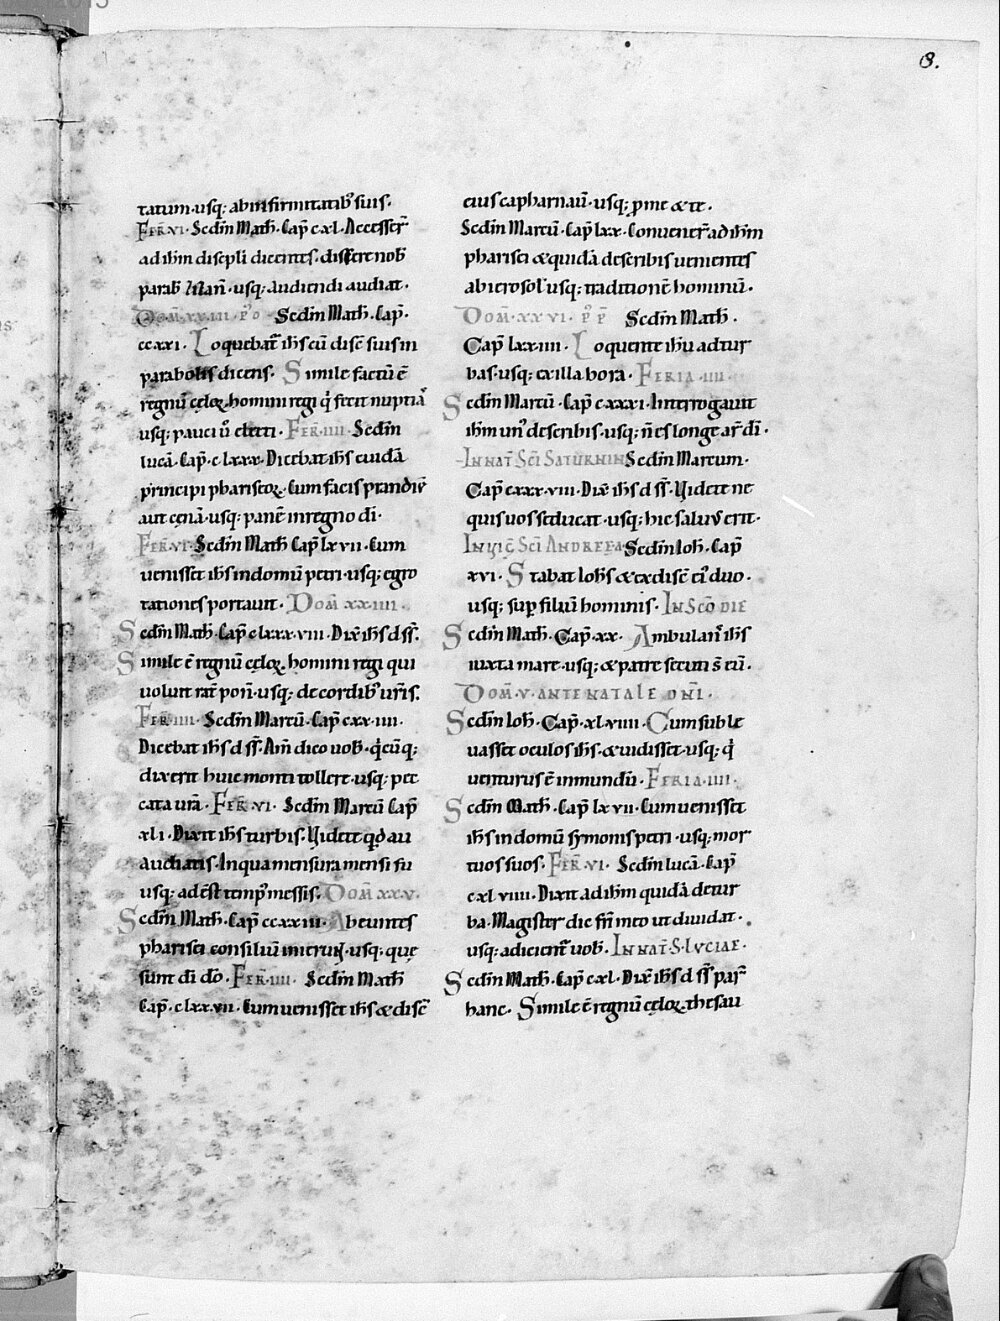 8.
tatum·usq; abinfirmitatib; suis·
Fer̄·vi· Scdm̄ Math̄·Cap̄ cxl·Accesser̄
ad ihm̄ discpli dicentes· dissere nob̄
parab̄ usq; audiendi audiat·
Dom̄·xxiii· Scdm̄ Math̄·Cap̄·
ccxxi· Loquebat̄ ihs̄ cū disc̄ suis in
parabolis dicens· Simile factū ē
regnū celoꝝ homini regi q̇ fecit nuptiā
usq; pauci ū electi· Fer̄·iiii· Scdm̄
lucā·Cap̄·clxxx·Dicebat ihs̄ cuidā
principi phariseoꝝ·Cum facis prandiū
aut cenā·usq; panē in regno di·
Fer̄·vi· Scdm̄ Math̄ Cap̄ lxvii·Cum
uenisset ihs̄ in domū petri·usq; egro
tationes portauit· Dom̄ xxiiii·
Scdm̄ Math̄·Cap̄ clxxxviii·Dix̄ ihs̄ d s̄s̄·
Simile ē regnū celoꝝ homini regi qui
uoluit rat̄ pon̄·usq; de cordib; ur̄is·
Fer̄·iiii· Scdm̄ Marcū·Cap̄ cxxiiii·
Dicebat ihs̄ d s̄s̄·Am̄ dico uob̄·q̇cūq;
dixerit huic monti tollere·usq; pec
cata ur̄a· Fer̄·vi· Scdm̄ Marcū Cap̄
xli·Dixit ihs̄ turbis·Videte qd̄ au
diatis·In qua mensura mensi fu
usq; adest tempꝰ messis· Dom̄ xxv·
Scdm̄ Math̄·Cap̄ ccxxiii·Abeuntes
pharisei consiliū inierunt·usq; que
sunt dī dō· Fer̄·iiii· Scdm̄ Math̄
Cap̄·clxxvii·Cum uenisset ihs̄ & disc̄
eius capharnaū·usq; p̄ me & te·
Scdm̄ Marcū·Cap̄ lxx·Conuener̄ ad ihm̄
pharisei & quidā de scribis uenientes
ab ierosol̄ usq; traditionē hominū·
Dom̄·xxvi· Scdm̄ Math̄·
Cap̄ lxxiiii· Loquente ihū ad tur
bas·usq; ex illa hora· Feria·iiii·
Scdm̄ Marcū·Cap̄ cxxxi·Interrogauit
ihm̄ unꝰ de scribis·usq; n̄ es longe ar̄ dī·
In nat̄ Sc̄i Saturnin Scdm̄ Marcum·
Cap̄ cxxxviii·Dix̄ ihs̄ d s̄s̄·Videte ne
quis uos seducat·usq; hic saluꝰ erit·
In viḡ Sc̄i Andreea Scdm̄ Ioh̄·Cap̄
xvi· Stabat Ioh̄s & ex disc̄ eiꝰ duo·
usq; sup̄ filiū hominis· In Scō die
Scdm̄ Math̄·Cap̄·xx· Ambulans̄ ihs̄
iuxta mare·usq; & patre secuti s̄ eū·
Dom̄·v·ante natale dn̄i·
Scdm̄ Ioh̄·Cap̄·xlviiii·Cum suble
uasset oculos ihs̄·& uidisset·usq; q̇
uenturus ē in mundū· Feria·iiii·
Scdm̄ Math̄·Cap̄ lxvii·Cum uenisset
ihs̄ in domū symonis petri·usq; mor
tuos suos· Fer̄·vi· Scdm̄ lucā·Cap̄
cxlviiii·Dixit ad ihm̄ quidā de tur
ba·Magister dic fr̄i meo ut diuidat·
usq; adicient̄ uob̄· In nat̄·S·Lvciae·
Scdm̄ Math̄·Cap̄ cxl·Dix̄ ihs̄ d s̄s̄ par̄
hanc· Simile ē regnū celoꝝ thesau